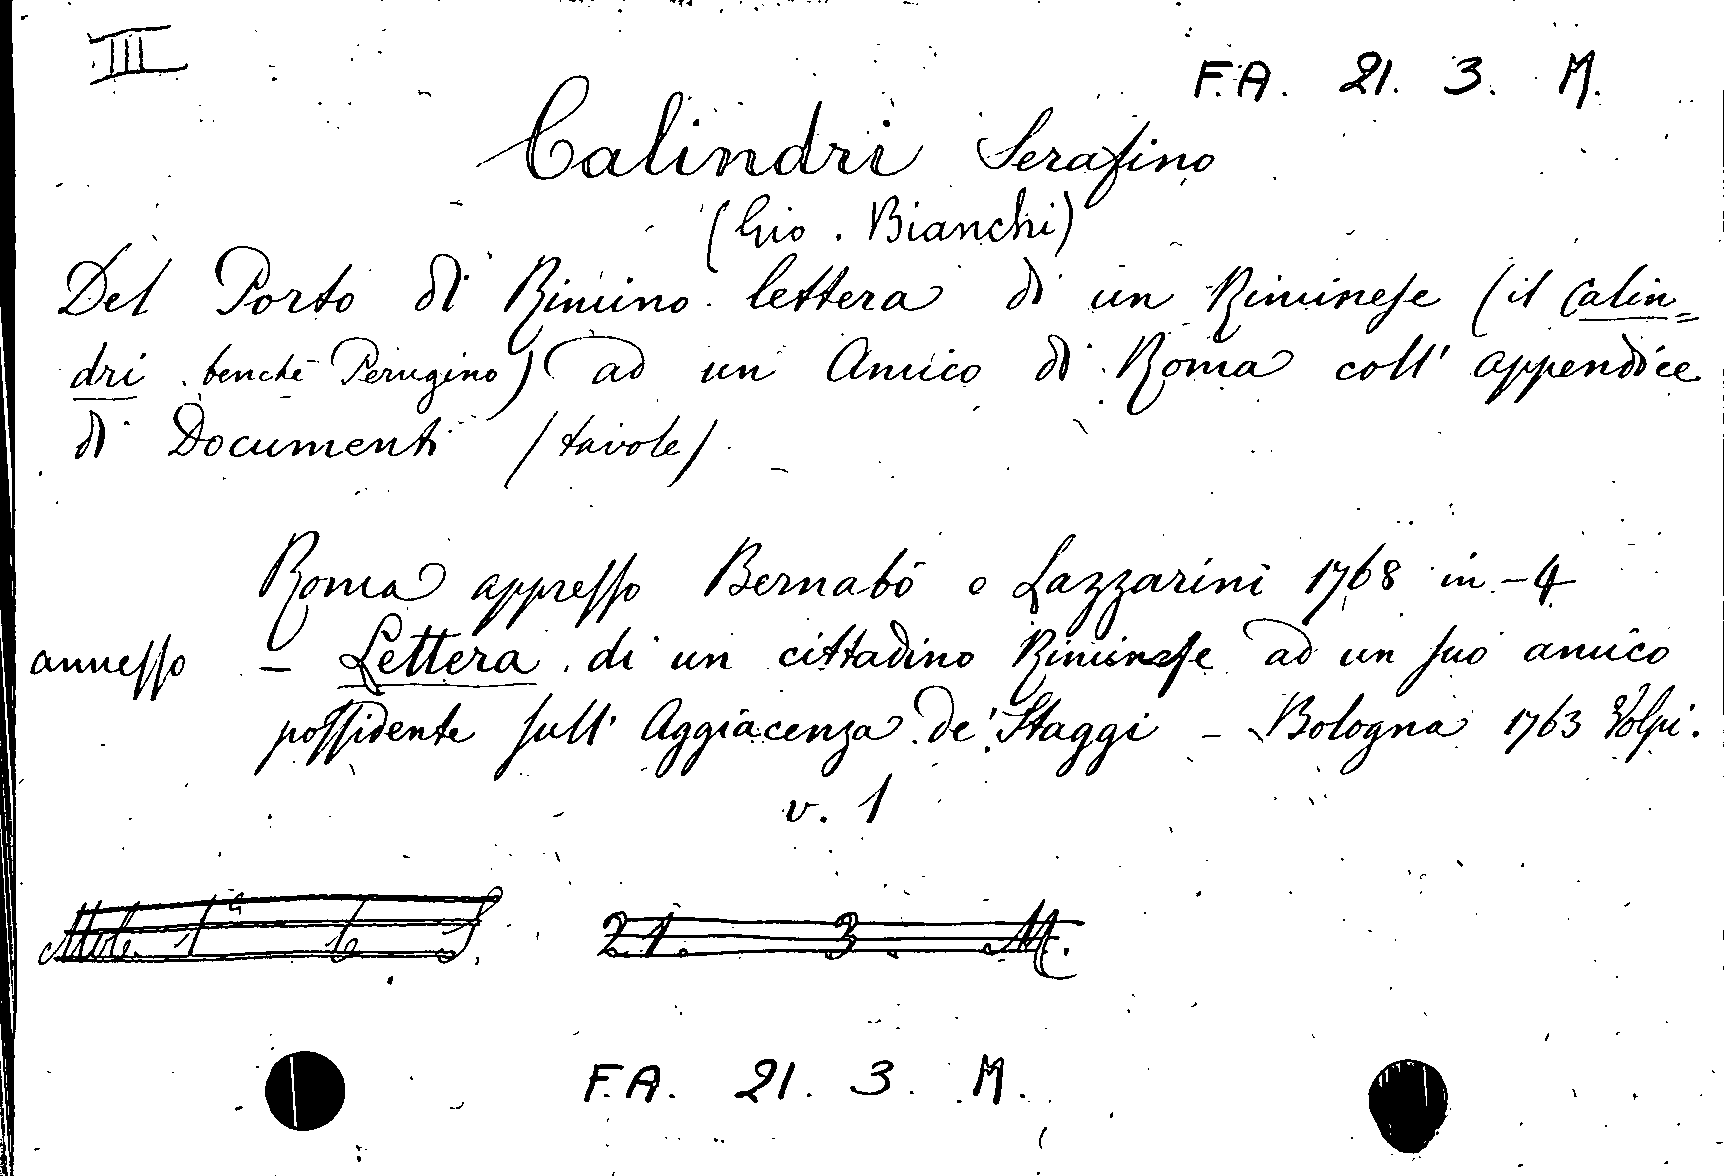 III
F.A. 21. 3. M.
Calindri Serafino
(Gio. Bianchi)
Del Porto di Rimino lettera di un Riminese (il Calin=
dri benchè Perugino) ad un Amico di Roma coll' appendice
di Documenti (tavole)
Roma appresso Bernabò e Lazzarini 1768 in-4
annesso - Lettera di un cittadino Riminese ad un suo amico
possidente sull' Aggiacenza de' Staggi - Bologna 1763 Volpi.
v. 1
21. 3. M.
F.A. 21. 3. M.